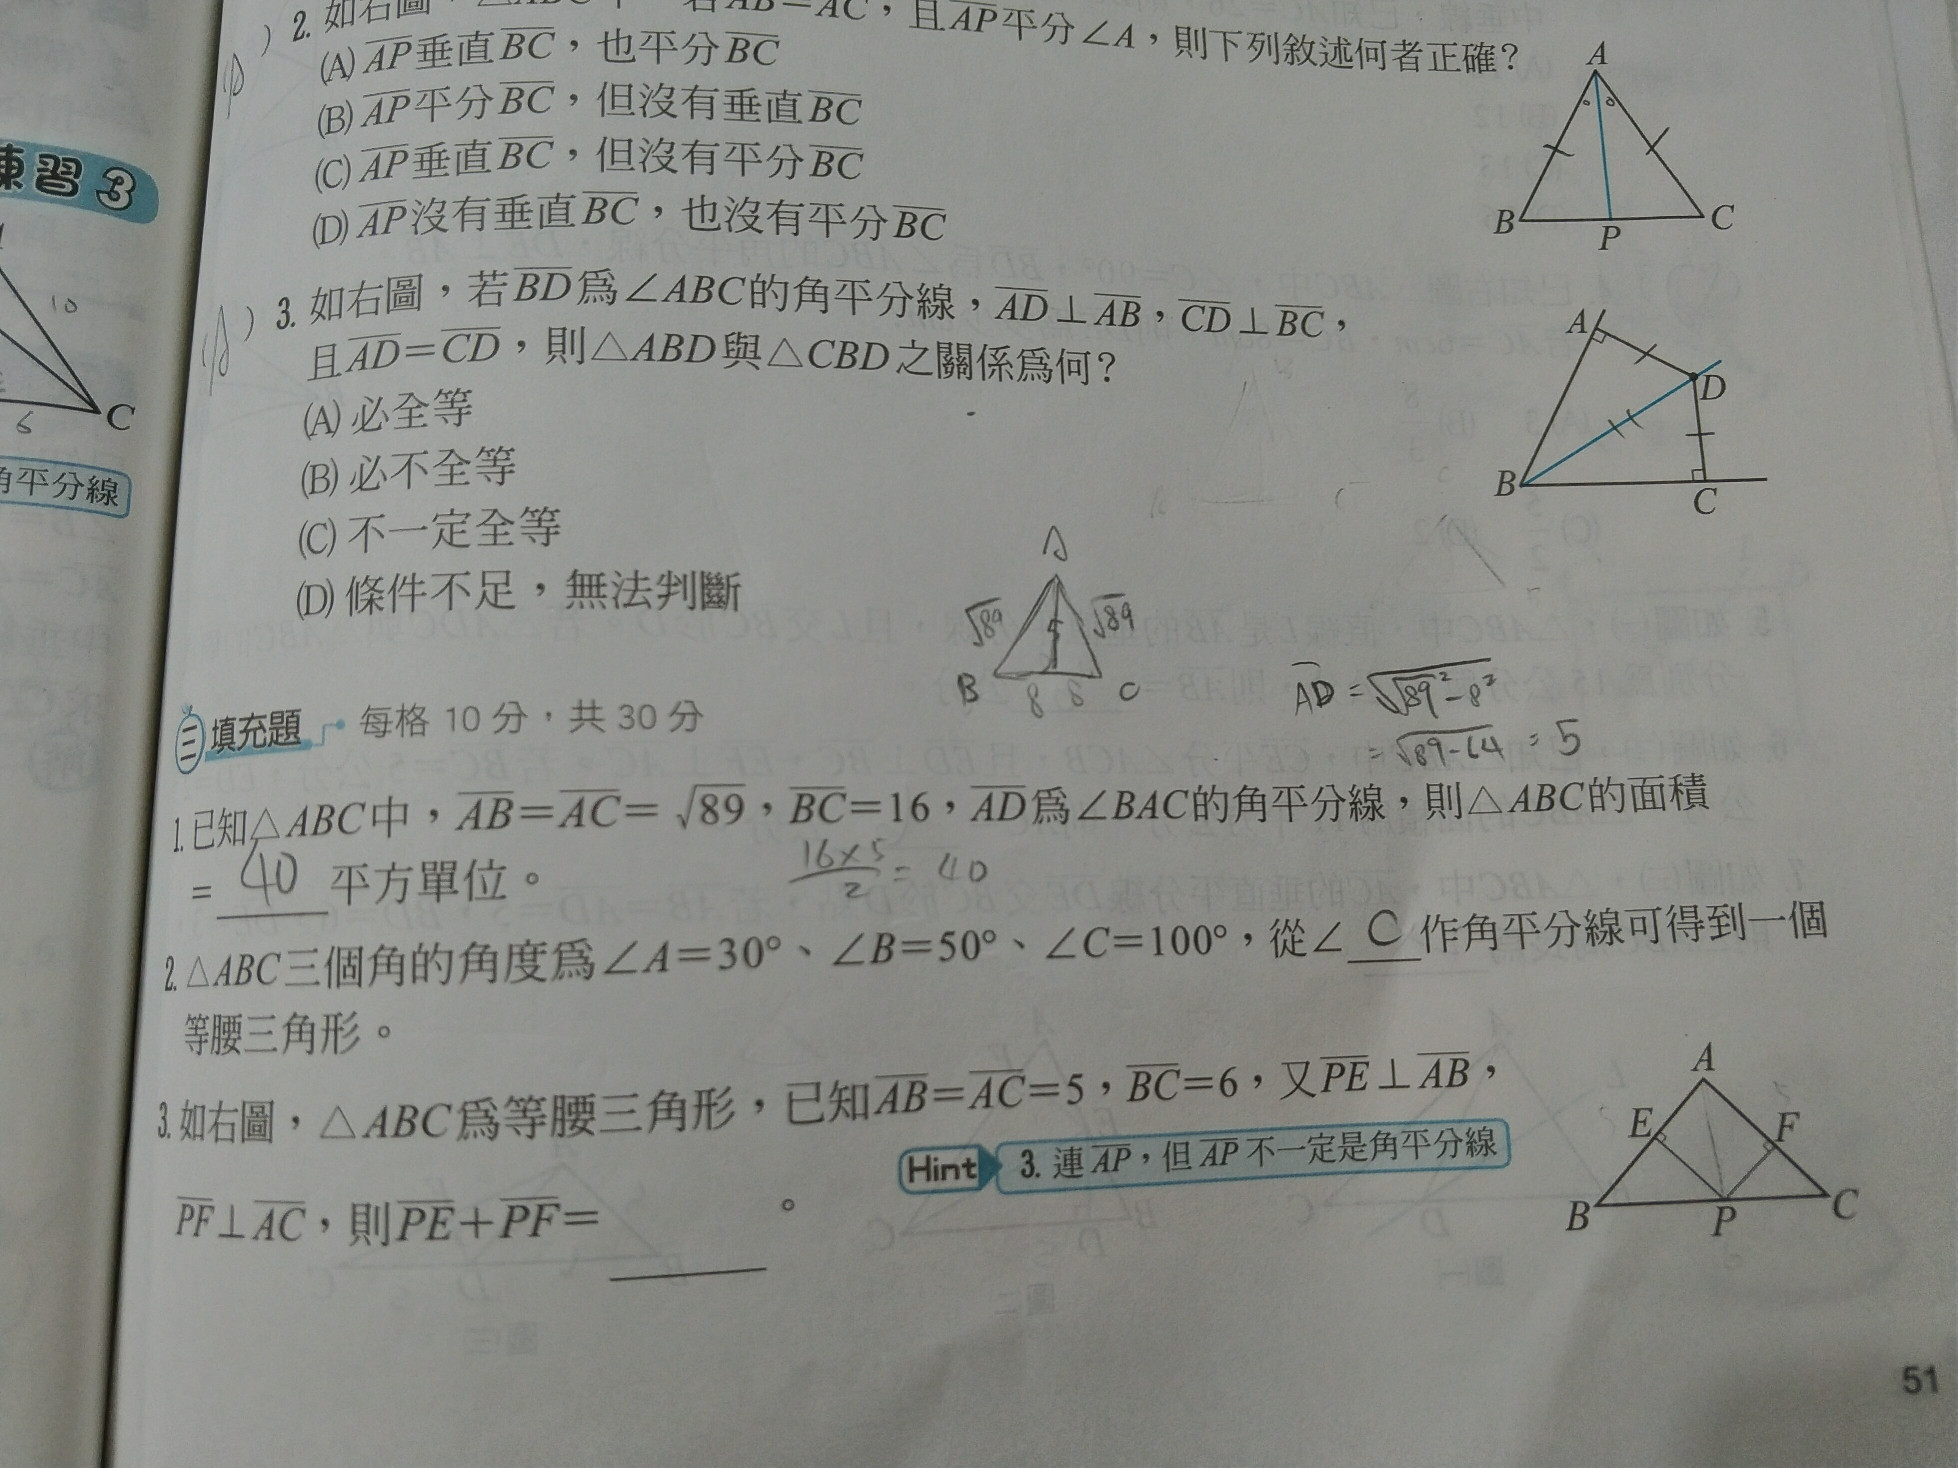 2. 如右圖，△ABC中，若AB=AC，且AP平分∠A，則下列敘述何者正確？
(A) AP垂直BC，也平分BC
(B) AP平分BC，但沒有垂直BC
(C) AP垂直BC，但沒有平分BC
(D) AP沒有垂直BC，也沒有平分BC
A
B
P
C
練習3
10
6
C
角平分線
(A) 3. 如右圖，若BD為∠ABC的角平分線，AD⊥AB，CD⊥BC，
且AD=CD，則△ABD與△CBD之關係為何？
(A) 必全等
(B) 必不全等
(C) 不一定全等
(D) 條件不足，無法判斷
A
D
B
C
A
√89
5
√89
B
8
8
C
AD=√(√89²-8²)
=√(89-64)=5
三 填充題 每格 10 分，共 30 分
1. 已知△ABC中，AB=AC=√89，BC=16，AD為∠BAC的角平分線，則△ABC的面積
= 40 平方單位。
16×5/2=40
2. △ABC三個角的角度為∠A=30°、∠B=50°、∠C=100°，從∠ C 作角平分線可得到一個
等腰三角形。
3. 如右圖，△ABC為等腰三角形，已知AB=AC=5，BC=6，又PE⊥AB，
Hint 3. 連AP，但AP不一定是角平分線
PF⊥AC，則PE+PF=______。
A
E
F
B
P
C
51